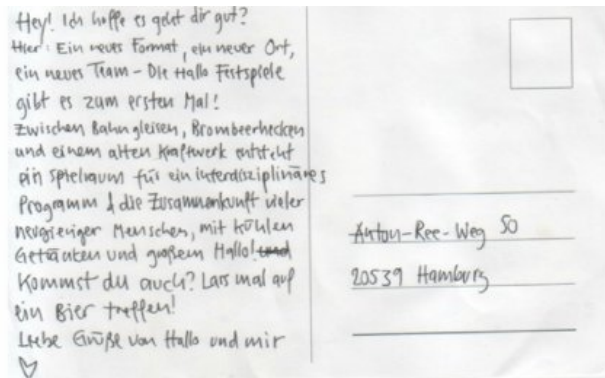 Hey! Ich hoffe es geht dir gut?
Hier: Ein neues Format, ein neuer Ort,
ein neues Team – Die Hallo Festspiele
gibt es zum ersten Mal!
Zwischen Bahngleisen, Brombeerhecken
und einem alten Kraftwerk entsteht
ein Spielraum für ein interdisziplinäres
Programm & die Zusammenkunft vieler
neugieriger Menschen, mit kühlen
Getränken und großem Hallo! und
Kommst du auch? Lass mal auf
ein Bier treffen!
Liebe Grüße von Hallo und mir
Anton-Ree-Weg 50
20539 Hamburg